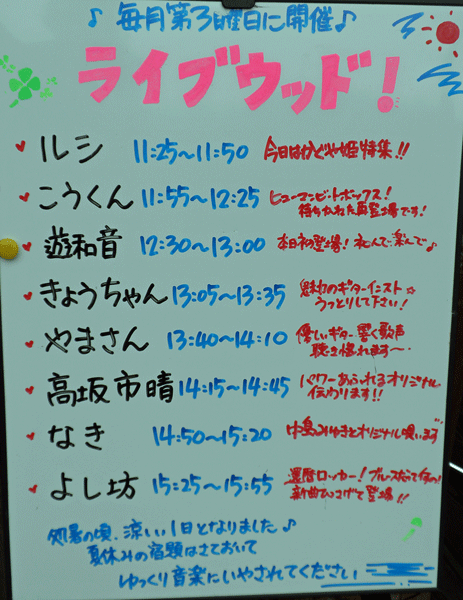 ♪ 毎月第3日曜日に開催♪
ライブウッド!
♥ ルシ 11:25〜11:50 今日はかぐや姫特集!!
♥ こうくん 11:55〜12:25 ヒューマンビートボックス!
待ちかねた再登場です!
遊和音 12:30〜13:00 本日初登場! 和んで楽んで♪
♥ きょうちゃん 13:05〜13:35 魅惑のギターインスト☆
うっとりして下さい!
♥ やまさん 13:40〜14:10 優しいギター響く歌声
聴き惚れます〜
♥ 高坂市晴 14:15〜14:45 パワーあふれるオリジナル
伝わります!!
♥ なき 14:50〜15:20 中島みゆきとオリジナル唄います
♥ よし坊 15:25〜15:55 還暦ロッカー! ブルースだって
新曲ひっさげて登場!!
処暑の頃、涼しい1日となりました♪
夏休みの宿題はさておいて
ゆっくり音楽にいやされてください